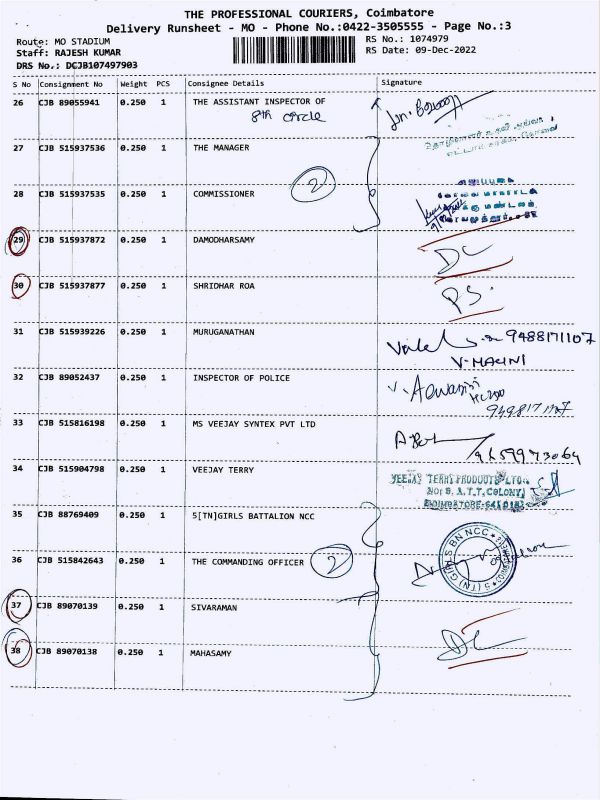 THE PROFESSIONAL COURIERS, Coimbatore
Delivery Runsheet - MO - Phone No.:0422-3505555 - Page No.:3
Route: MO STADIUM
RS No.: 1074979
Staff: RAJESH KUMAR
RS Date: 09-Dec-2022
DRS No.: DCJB107497903
S No Consignment No Weight PCS Consignee Details Signature
26 CJB 89055941 0.250 1 THE ASSISTANT INSPECTOR OF
8th circle
27 CJB 515937536 0.250 1 THE MANAGER
2
28 CJB 515937535 0.250 1 COMMISSIONER
29 CJB 515937872 0.250 1 DAMODHARSAMY
30 CJB 515937877 0.250 1 SHRIDHAR ROA
31 CJB 515939226 0.250 1 MURUGANATHAN 9488171107
V-MALINI
32 CJB 89052437 0.250 1 INSPECTOR OF POLICE
33 CJB 515816198 0.250 1 MS VEEJAY SYNTEX PVT LTD
34 CJB 515904798 0.250 1 VEEJAY TERRY
VEEJAY TERRY PRODUCTS LTD
A.T.T. COLONY
COIMBATORE-641 018
35 CJB 88769409 0.250 1 5[TN]GIRLS BATTALION NCC
5 (TN) GIRLS BN NCC
36 CJB 515842643 0.250 1 THE COMMANDING OFFICER
2
37 CJB 89070139 0.250 1 SIVARAMAN
38 CJB 89070138 0.250 1 MAHASAMY